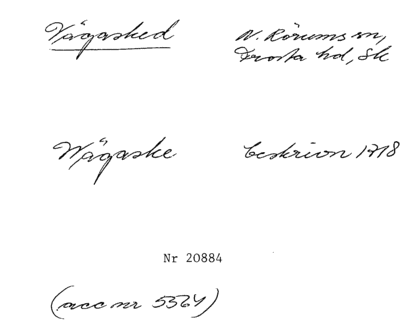 Vågasked N. Rörums sn,
Frosta hd, Sk
Wågaske. beskrivn 1718
Nr 20884
(acc nr 5564)